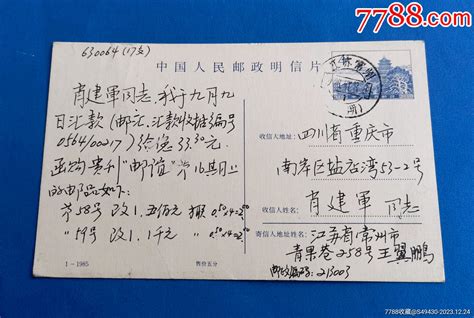 7788.com
630064(17支)
中国人民邮政明信片
肖建軍同志,我于九月九
日汇款(邮汇,汇款收据编号
0564/00217)给您33.30元
函购贵刊"邮谊"第16期上
的邮品如下:
第58号 改1.五佰元
"59号 改1.1千元
收信人地址:四川省重庆市
南岸区盐店湾53-2号
收信人姓名:肖建軍 同志
寄信人地址:江苏省常州市
青果巷258号王翼鹏
邮政编码:213003
1-1985
售价五分
7788收藏@S49430-2023.12.24